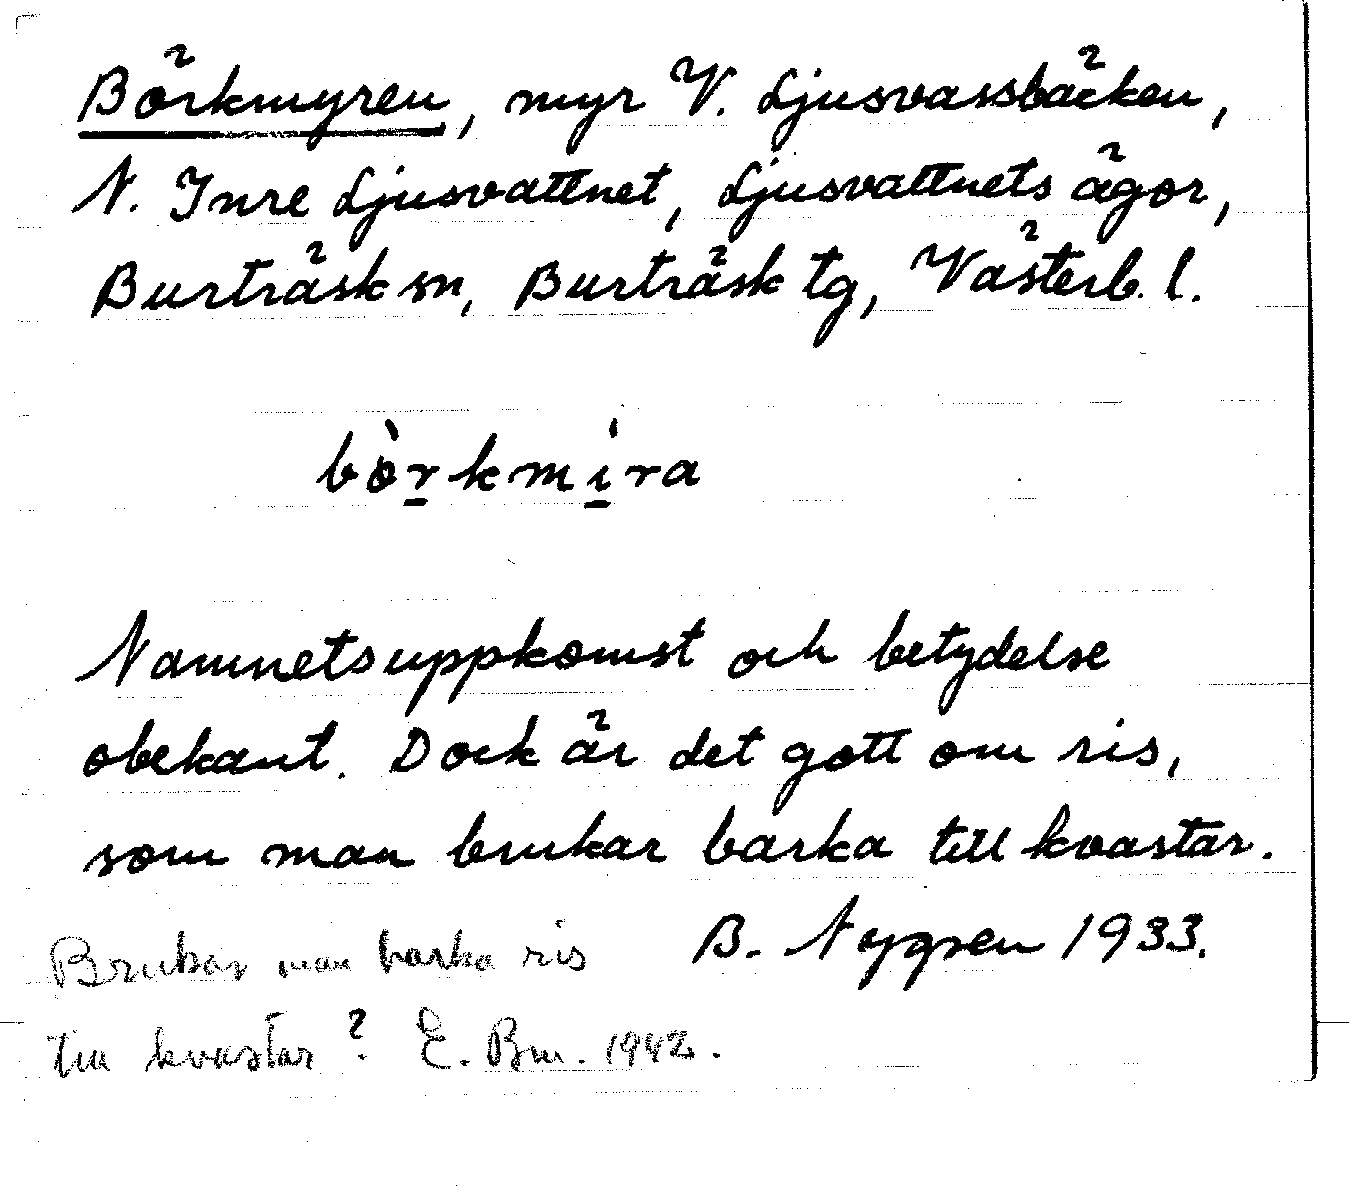 Börkmyren, myr V. Ljusvassbäcken,
N. Inre Ljusvattnet, Ljusvattnets ägor,
Burträsk sn, Burträsk tg, Västerb. l.
bò̱rkmi̱ra
Namnets uppkomst och betydelse
obekant. Dock är det gott om ris,
som man brukar barka till kvastar.
B. Nygren 1933.
Brukar man barka ris
till kvastar? E. Bm. 1942.